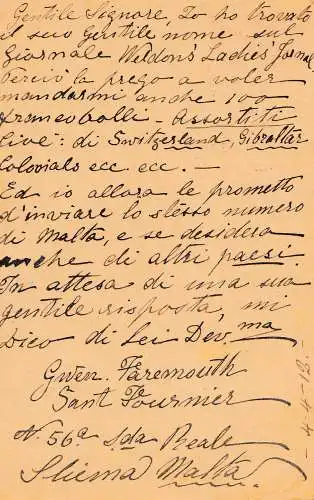 Gentile Signore, Io ho trovato
il suo gentile nome sul
giornale Weldon's Ladies' Jornal
Percivi la prego a voler
mandarmi anche 100
francobolli - Assortiti
cive: di Switzerland, Gibraltar
Colonials ecc. ecc. -
Ed io allora le prometto
d'inviare lo stèsso numero
di Malta, e se desidera
anche di altri paesi.
In attesa di una sua
gentile risposta, mi
Dico di Lei Dev.ma
Gwen. Faremouth
Sant Fournier
N. 56a Sda Reale
Sliema Malta.